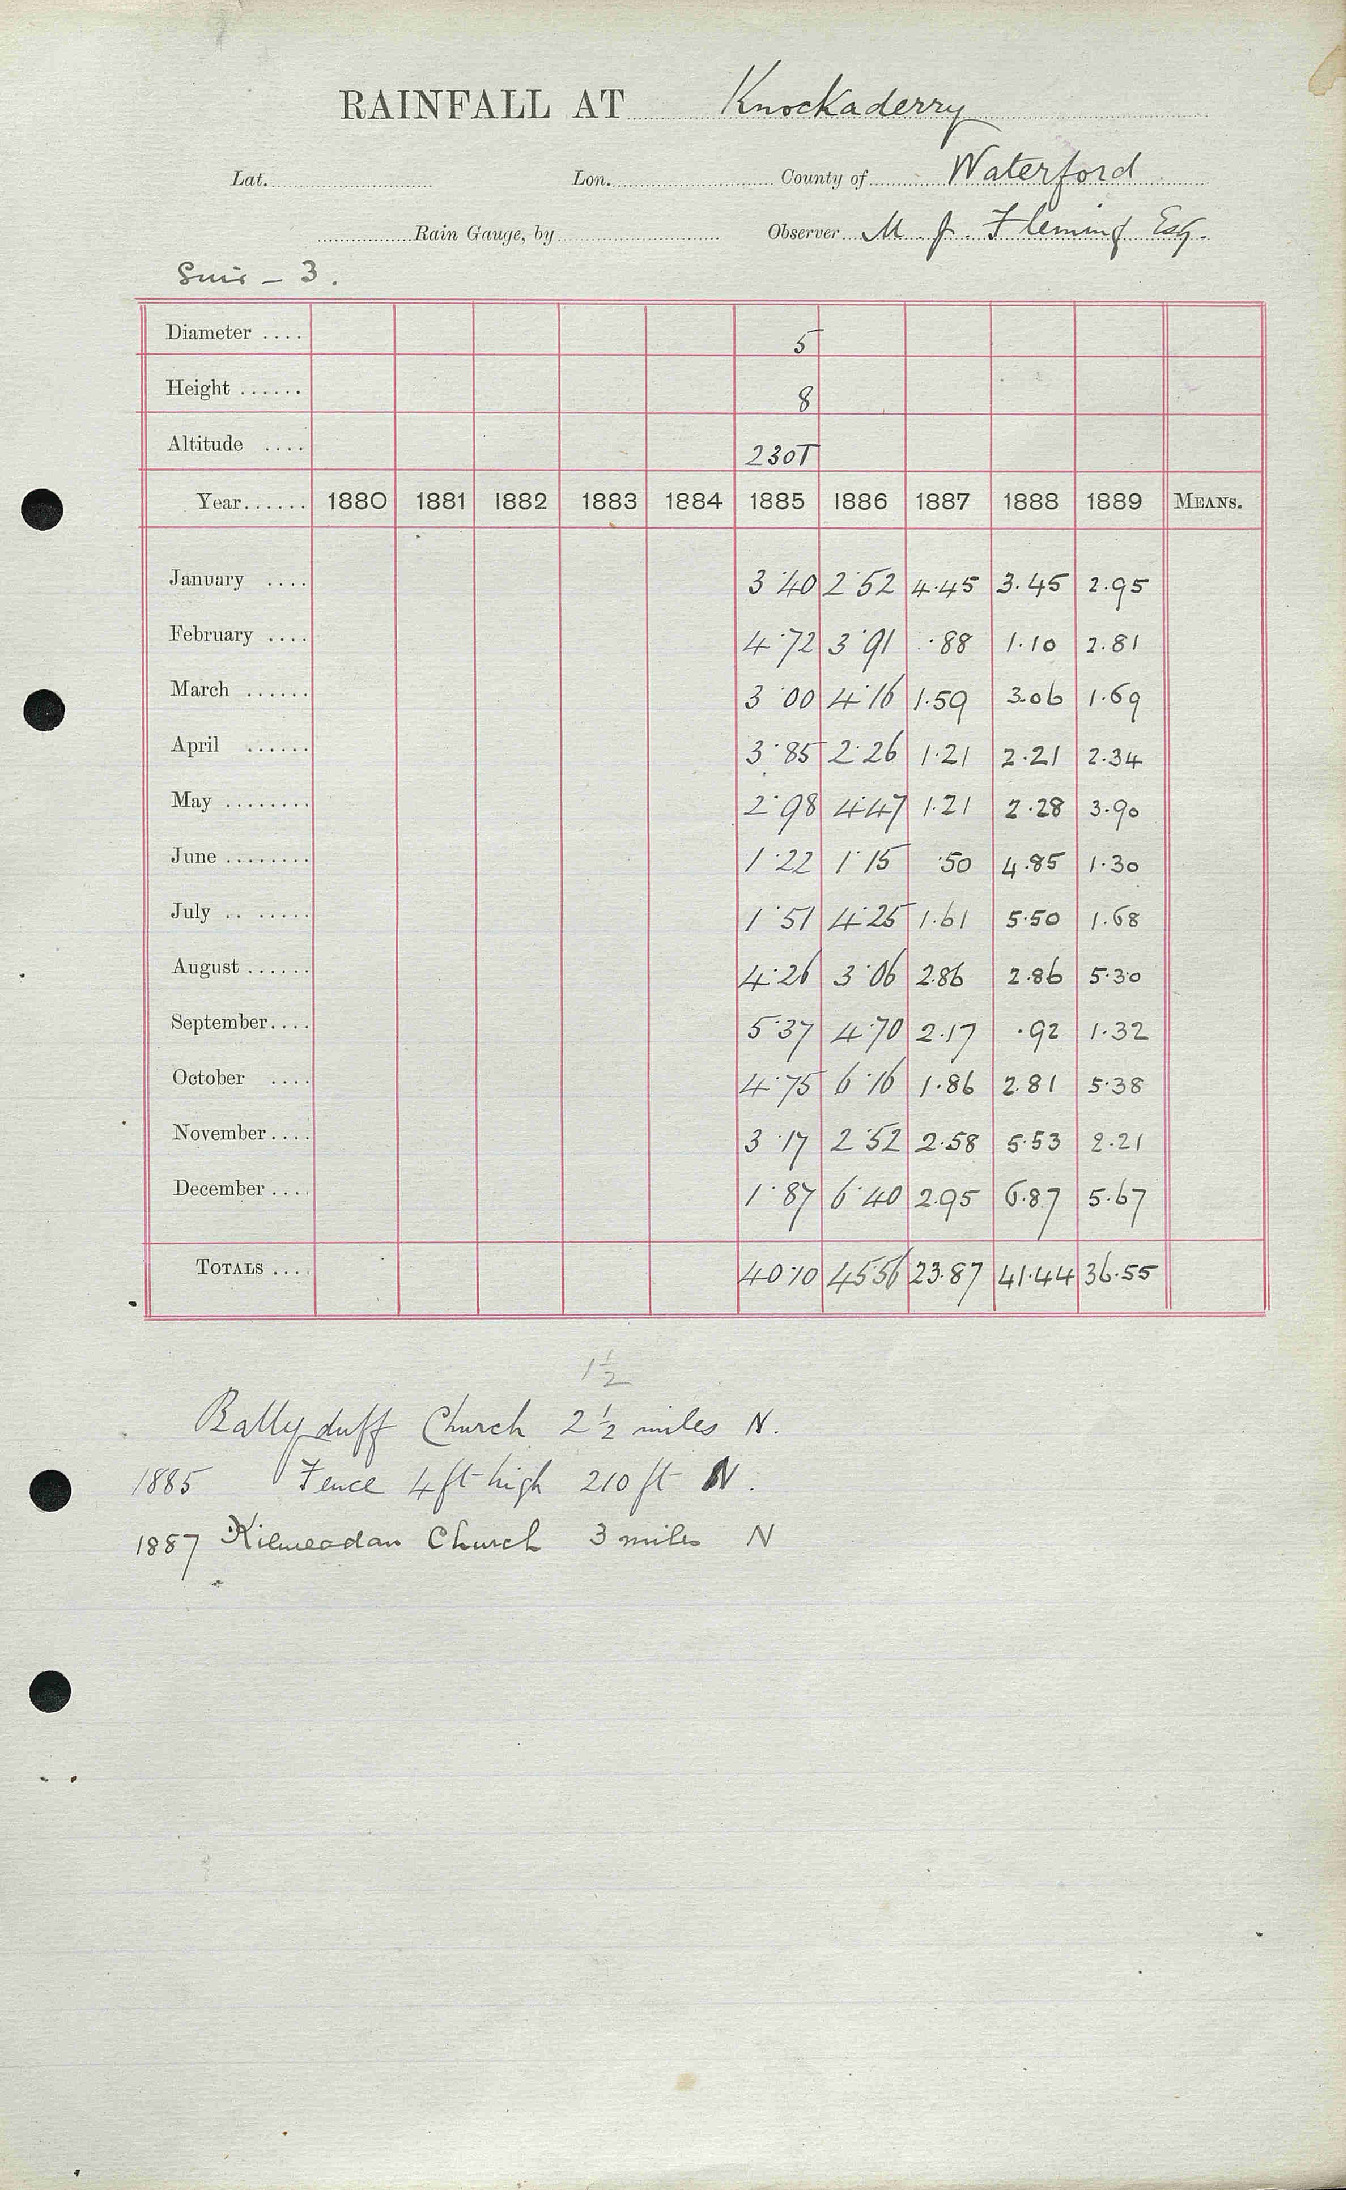 RAINFALL AT Knockaderry
Lat. Lon. County of Waterford
Rain Gauge, by Observer M J. Fleming Esq.
Suir - 3.
Diameter .... 5
Height ...... 8
Altitude .... 230T
Year...... 1880 1881 1882 1883 1884 1885 1886 1887 1888 1889 MEANS.
January .... 3.40 2.52 4.45 3.45 2.95
February .... 4.72 3.91 .88 1.10 2.81
March ...... 3.00 4.16 1.59 3.06 1.69
April ...... 3.85 2.26 1.21 2.21 2.34
May ........ 2.98 4.47 1.21 2.28 3.90
June ........ 1.22 1.15 .50 4.85 1.30
July .. ..... 1.51 4.25 1.61 5.50 1.68
August ...... 4.26 3.06 2.86 2.86 5.30
September.... 5.37 4.70 2.17 .92 1.32
October .... 4.75 6.16 1.86 2.81 5.38
November.... 3.17 2.52 2.58 5.53 2.21
December .... 1.87 6.40 2.95 6.87 5.67
TOTALS .... 40.10 45.56 23.87 41.44 36.55
1½
Ballyduff Church 2½ miles N.
1885 Fence 4 ft high 210 ft N.
1887 Kilmeadan Church 3 miles N